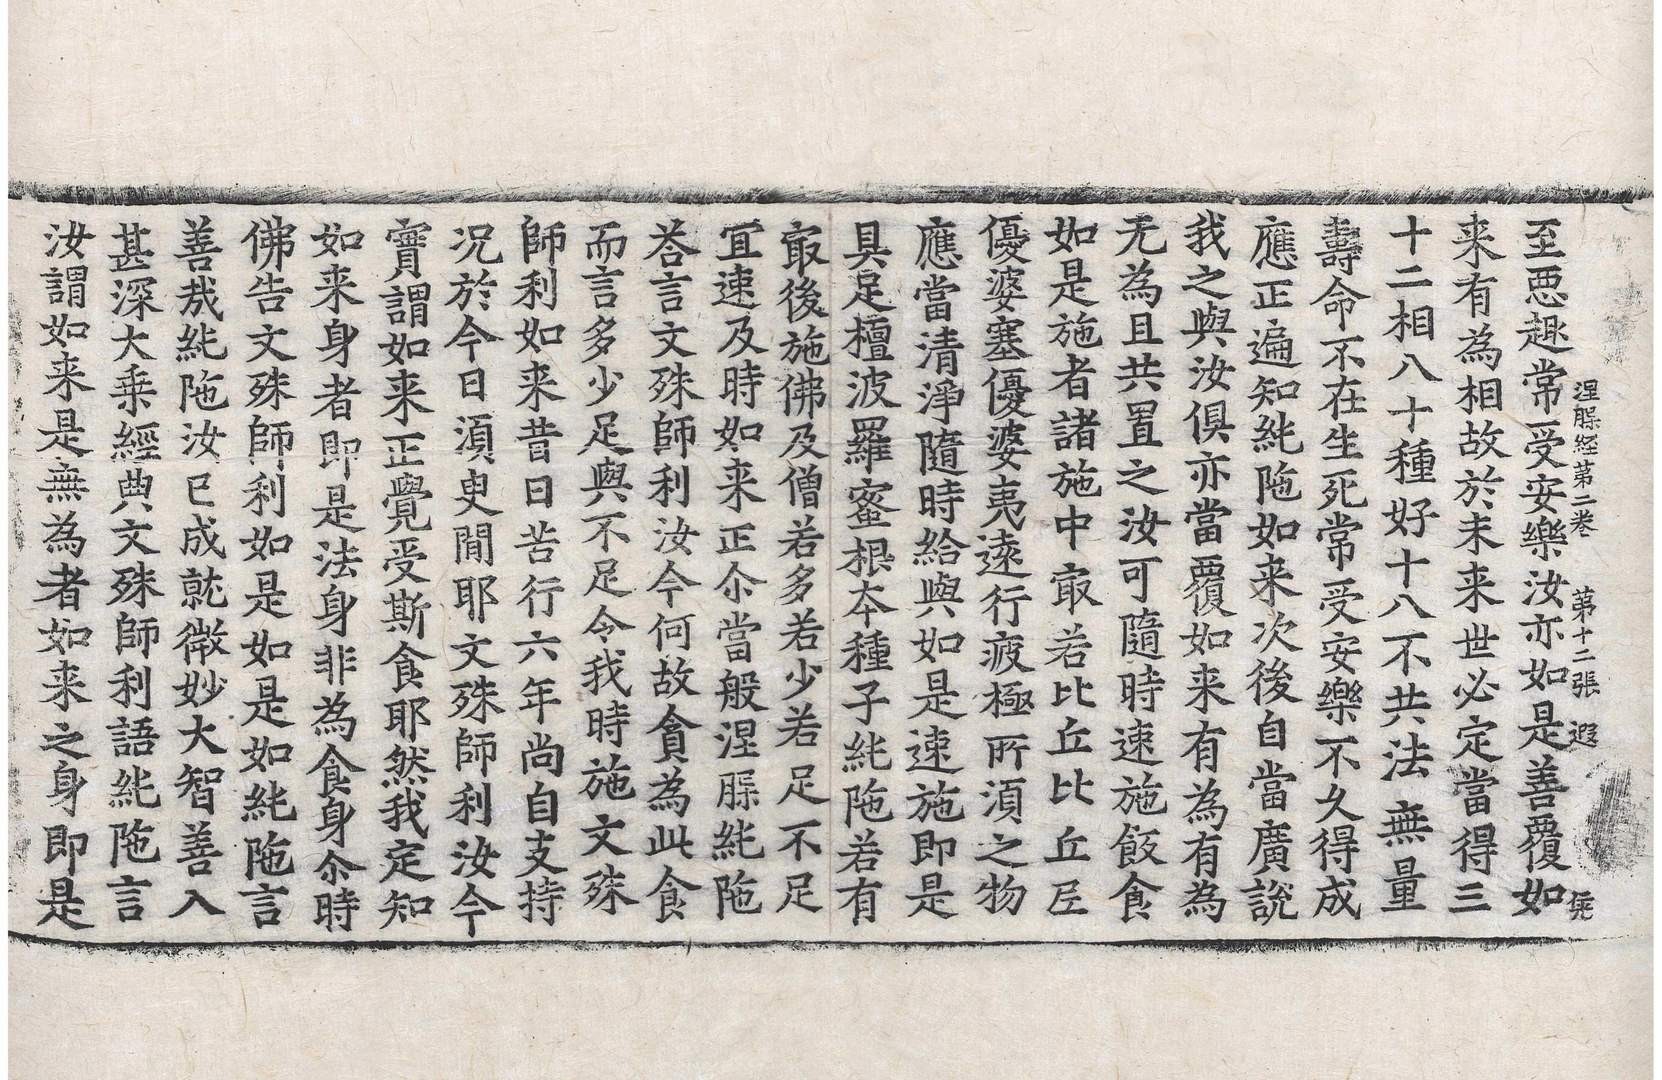 涅槃経第二巻 第十二張 遐
至惡趣常受安樂汝亦如是善覆如
来有為相故於未来世必定當得三
十二相八十種好十八不共法無量
壽命不在生死常受安樂不久得成
應正遍知純陁如来次後自當廣說
我之與汝俱亦當覆如来有為有為
无為且共置之汝可隨時速施飯食
如是施者諸施中㝡若比丘比丘尼
優婆塞優婆夷遠行疲極所湏之物
應當清淨隨時給與如是速施即是
具足檀波羅蜜根本種子純陁若有
㝡後施佛及僧若多若少若足不足
宜速及時如来正尒當般涅槃純陁
荅言文殊師利汝今何故貪為此食
而言多少足與不足令我時施文殊
師利如来昔日苦行六年尚自支持
況於今日湏臾閒耶文殊師利汝今
實謂如来正覺受斯食耶然我定知
如来身者即是法身非為食身尒時
佛告文殊師利如是如是如純陁言
善哉純陁汝已成就微妙大智善入
甚深大乗經典文殊師利語純陁言
汝謂如来是無為者如来之身即是